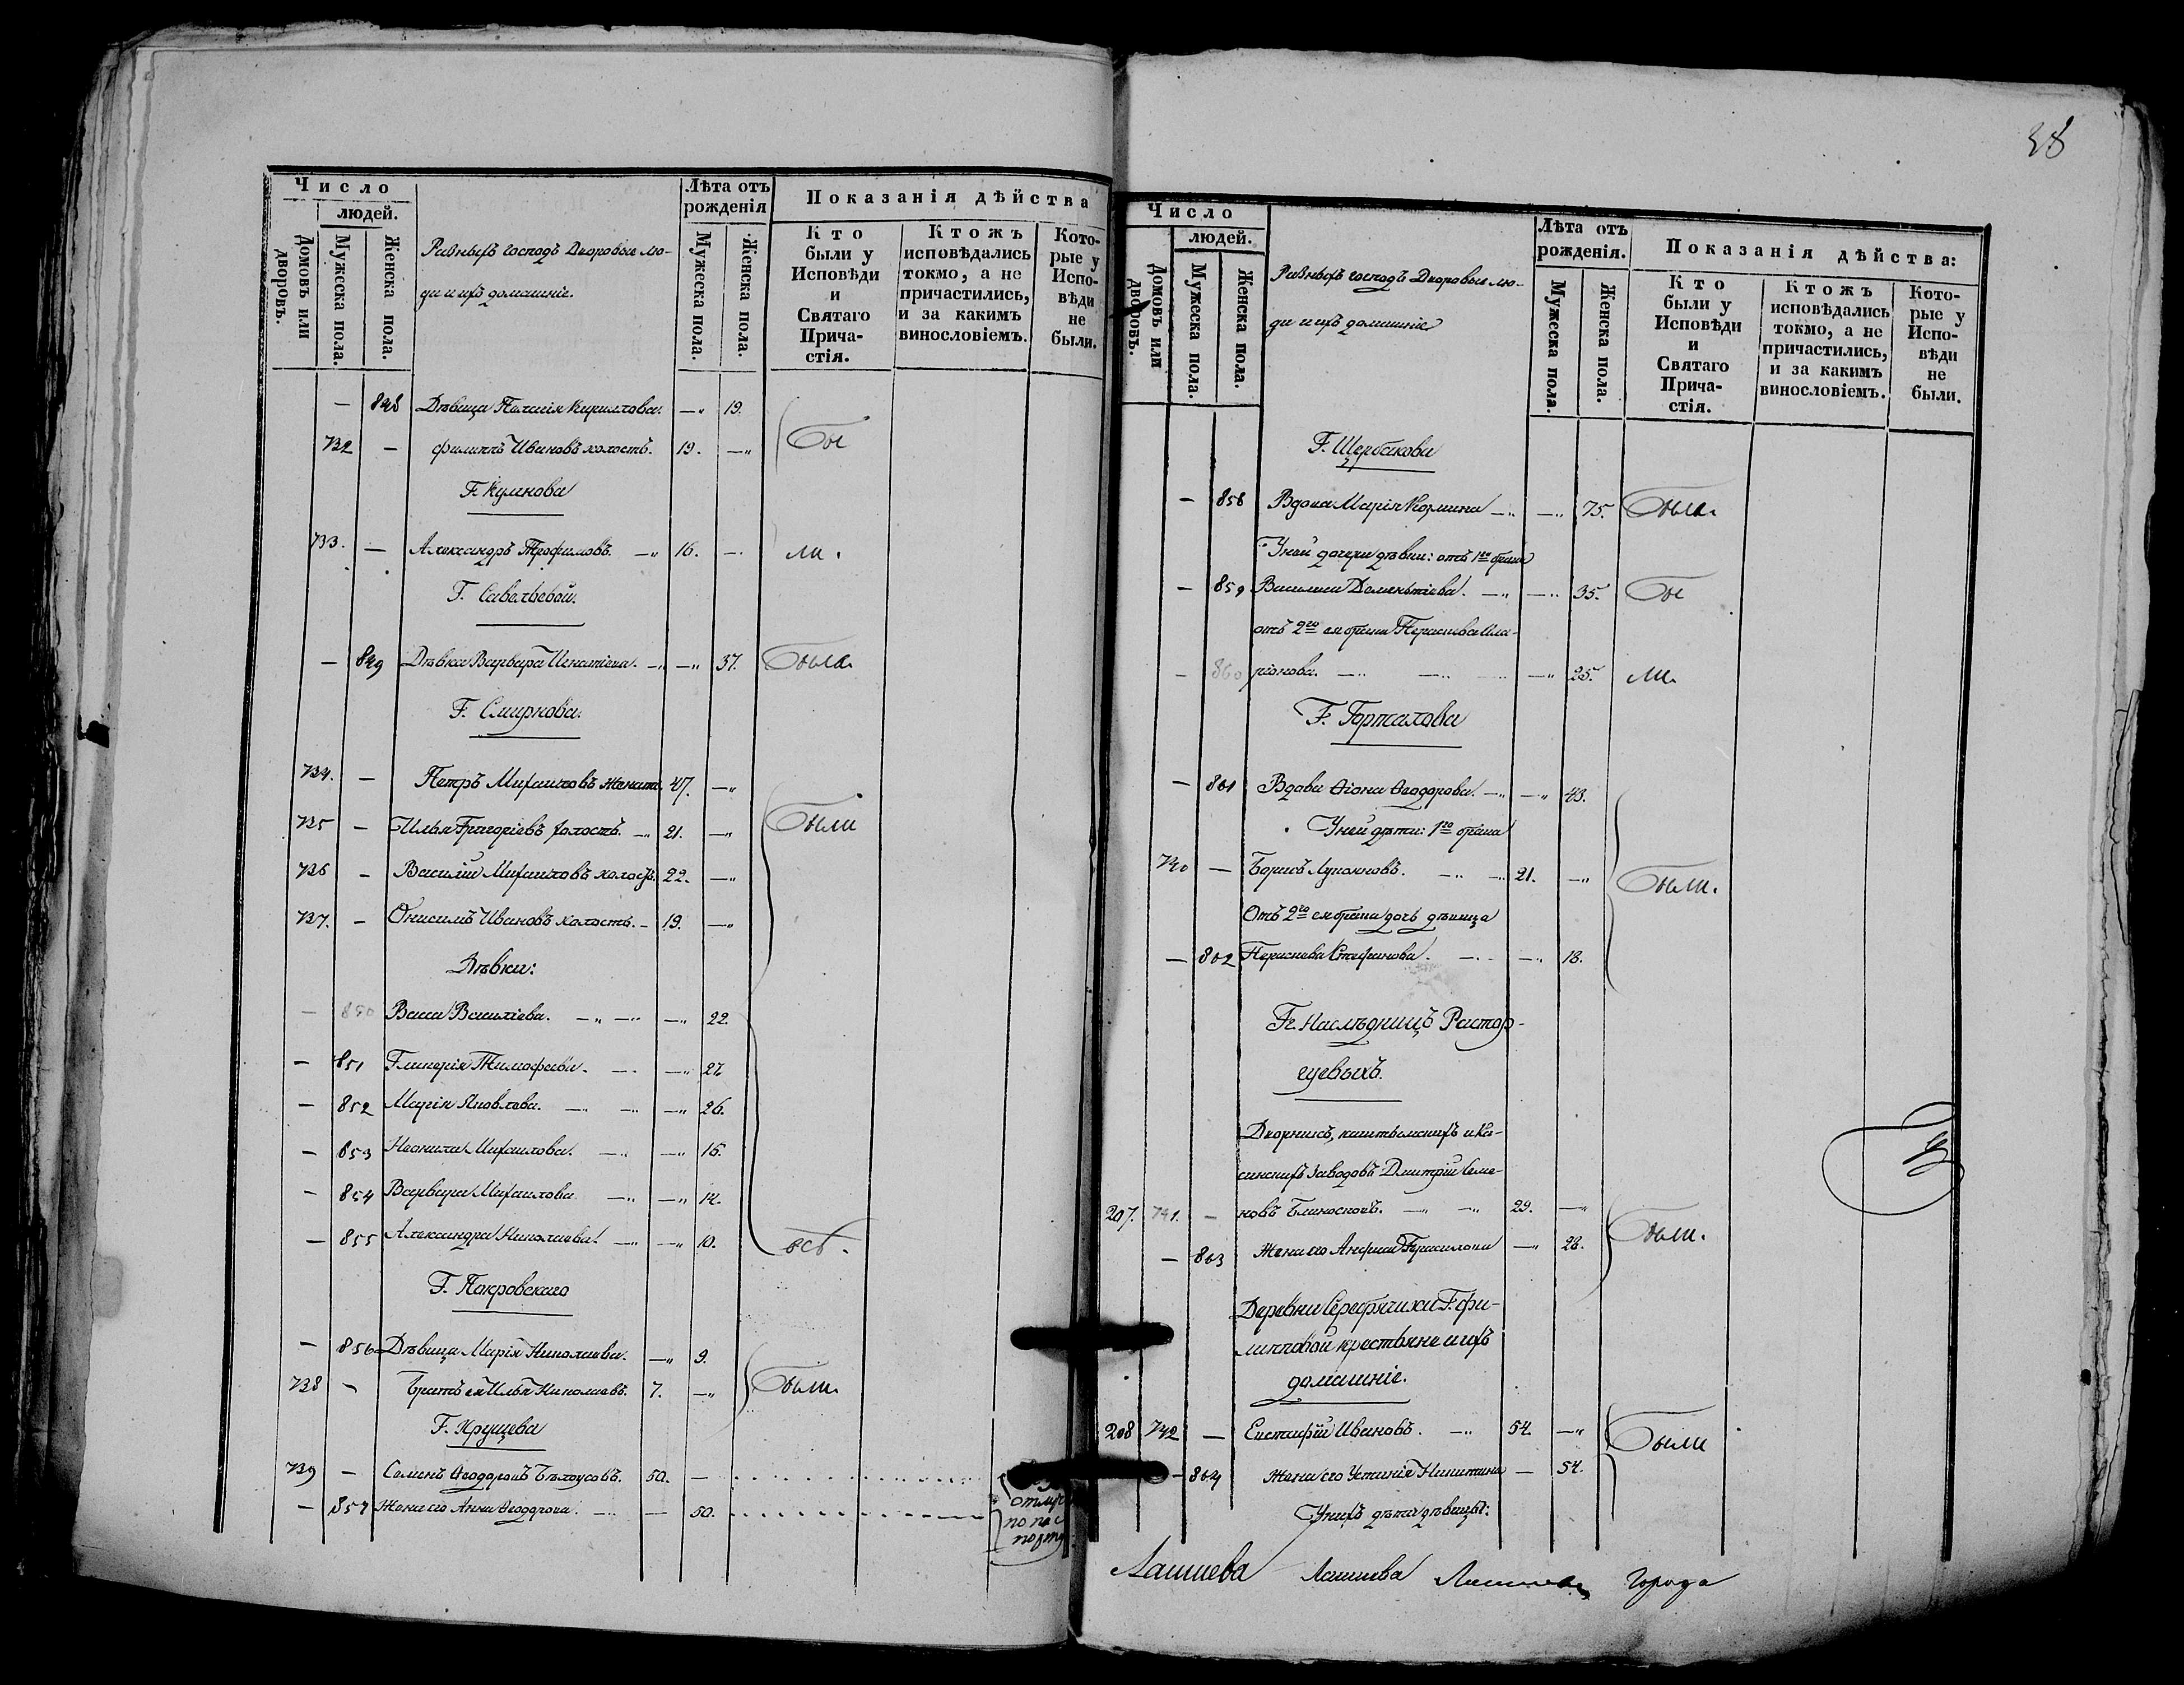 Число
людей.
Домовъ или дворовъ.
Мужеска пола.
Женска пола.
Разныхъ господъ Дворовые лю-
ди и ихъ домашніе.
Лѣта отъ
рожденія
Мужеска пола.
Женска пола.
Показанія дѣйства
Кто
были у
Исповѣди
и
Святаго
Прича-
стія.
Ктожъ
исповѣдались
токмо, а не
причастились,
и за какимъ
винословіемъ.
Кото-
рые у
Испо-
вѣди
не
были.
— 848 Дѣвица Пелагія Кирилова. —" 19.
732 — Филиппъ Ивановъ холостъ. 19. —" Бы
Г. Куликова
733. — Александръ Трофимовъ. —" 16. — ли.
Г. Савельевой.
— 849 Дѣвка Варвара Игнатіева. —" —" 37. Была
Г. Смирнова.
734. — Петръ Михаиловъ женатъ. 47. —"
735 — Илья Григоріевъ холостъ. —" 21. —" Были
736 — Василій Михаиловъ холостъ. 22. —"
737. — Онисимъ Ивановъ холостъ. — 19. —"
Дѣвки:
— 850 Васса Василіева. —" —" —" 22.
— 851 Гликерія Тимофеева. — —" 27.
— 852 Марія Яковлева. —" —" —" 26.
— 853 Неонила Михаилова. —" —" 15.
— 854 Варвара Михаилова —" —" 12.
— 855 Александра Николаева. —" —" 10. всѣ.
Г. Покровскаго
— 856 Дѣвица Марія Николаева. —" 9.
738 — Братъ ея Илья Николаевъ. 7. —" Были
Г. Хрущева
739 — Семенъ Ѳеодоровъ Бѣлоусовъ. 50. —
— 857 Жена его Анна Ѳеодорова. — — 50.
по пас
порту
38
Число
людей.
Домовъ или дворовъ.
Мужеска пола.
Женска пола.
Разныхъ господъ Дворовые лю-
ди и ихъ домашніе
Лѣта отъ
рожденія.
Мужеска пола.
Женска пола.
Показанія дѣйства:
Кто
были у
Исповѣди
и
Святаго
Прича-
стія.
Ктожъ
исповѣдались
токмо, а не
причастились,
и за какимъ
винословіемъ.
Кото-
рые у
Испо-
вѣди
не
были.
Г. Щербакова
— 858 Вдова Марія Козмина —" —" 75. Была.
У ней дочери дѣвки: отъ 1го брака
— 859 Василиса Дементіева. —" —" 35. Бы
отъ 2го ея брака Параскева Ила-
— 860 ріонова. —" —" —" 25. ли.
Г. Горталова
— 861 Вдова Ѳеодорова. —" —" 43.
У ней дѣти: 1го брака
740 — Борисъ Лукояновъ. —" —" 21. —" Были.
Отъ 2го ея брака дочь дѣвица
— 862 Параскева Стефанова. — —" 18.
Гг. Наслѣдницъ Растор-
гуевыхъ.
Дворникъ, кыштымскихъ и Ка-
слинскихъ Заводовъ Дмитрій Семе-
207. 741. — новъ Блиноскокъ. —" —" 29. —"
— 863 Жена его Анфиса Герасимова —" 28. Были.
Деревни Серебрячихи Г. Фи-
липповой крестьяне и ихъ
домашніе.
208 742 — Евстафій Ивановъ. —" 54. —" Были
— 864 Жена его Устинія Никитина — 54.
У нихъ дѣти дѣвицы:
Лаишева Лаишева Лаишева Города